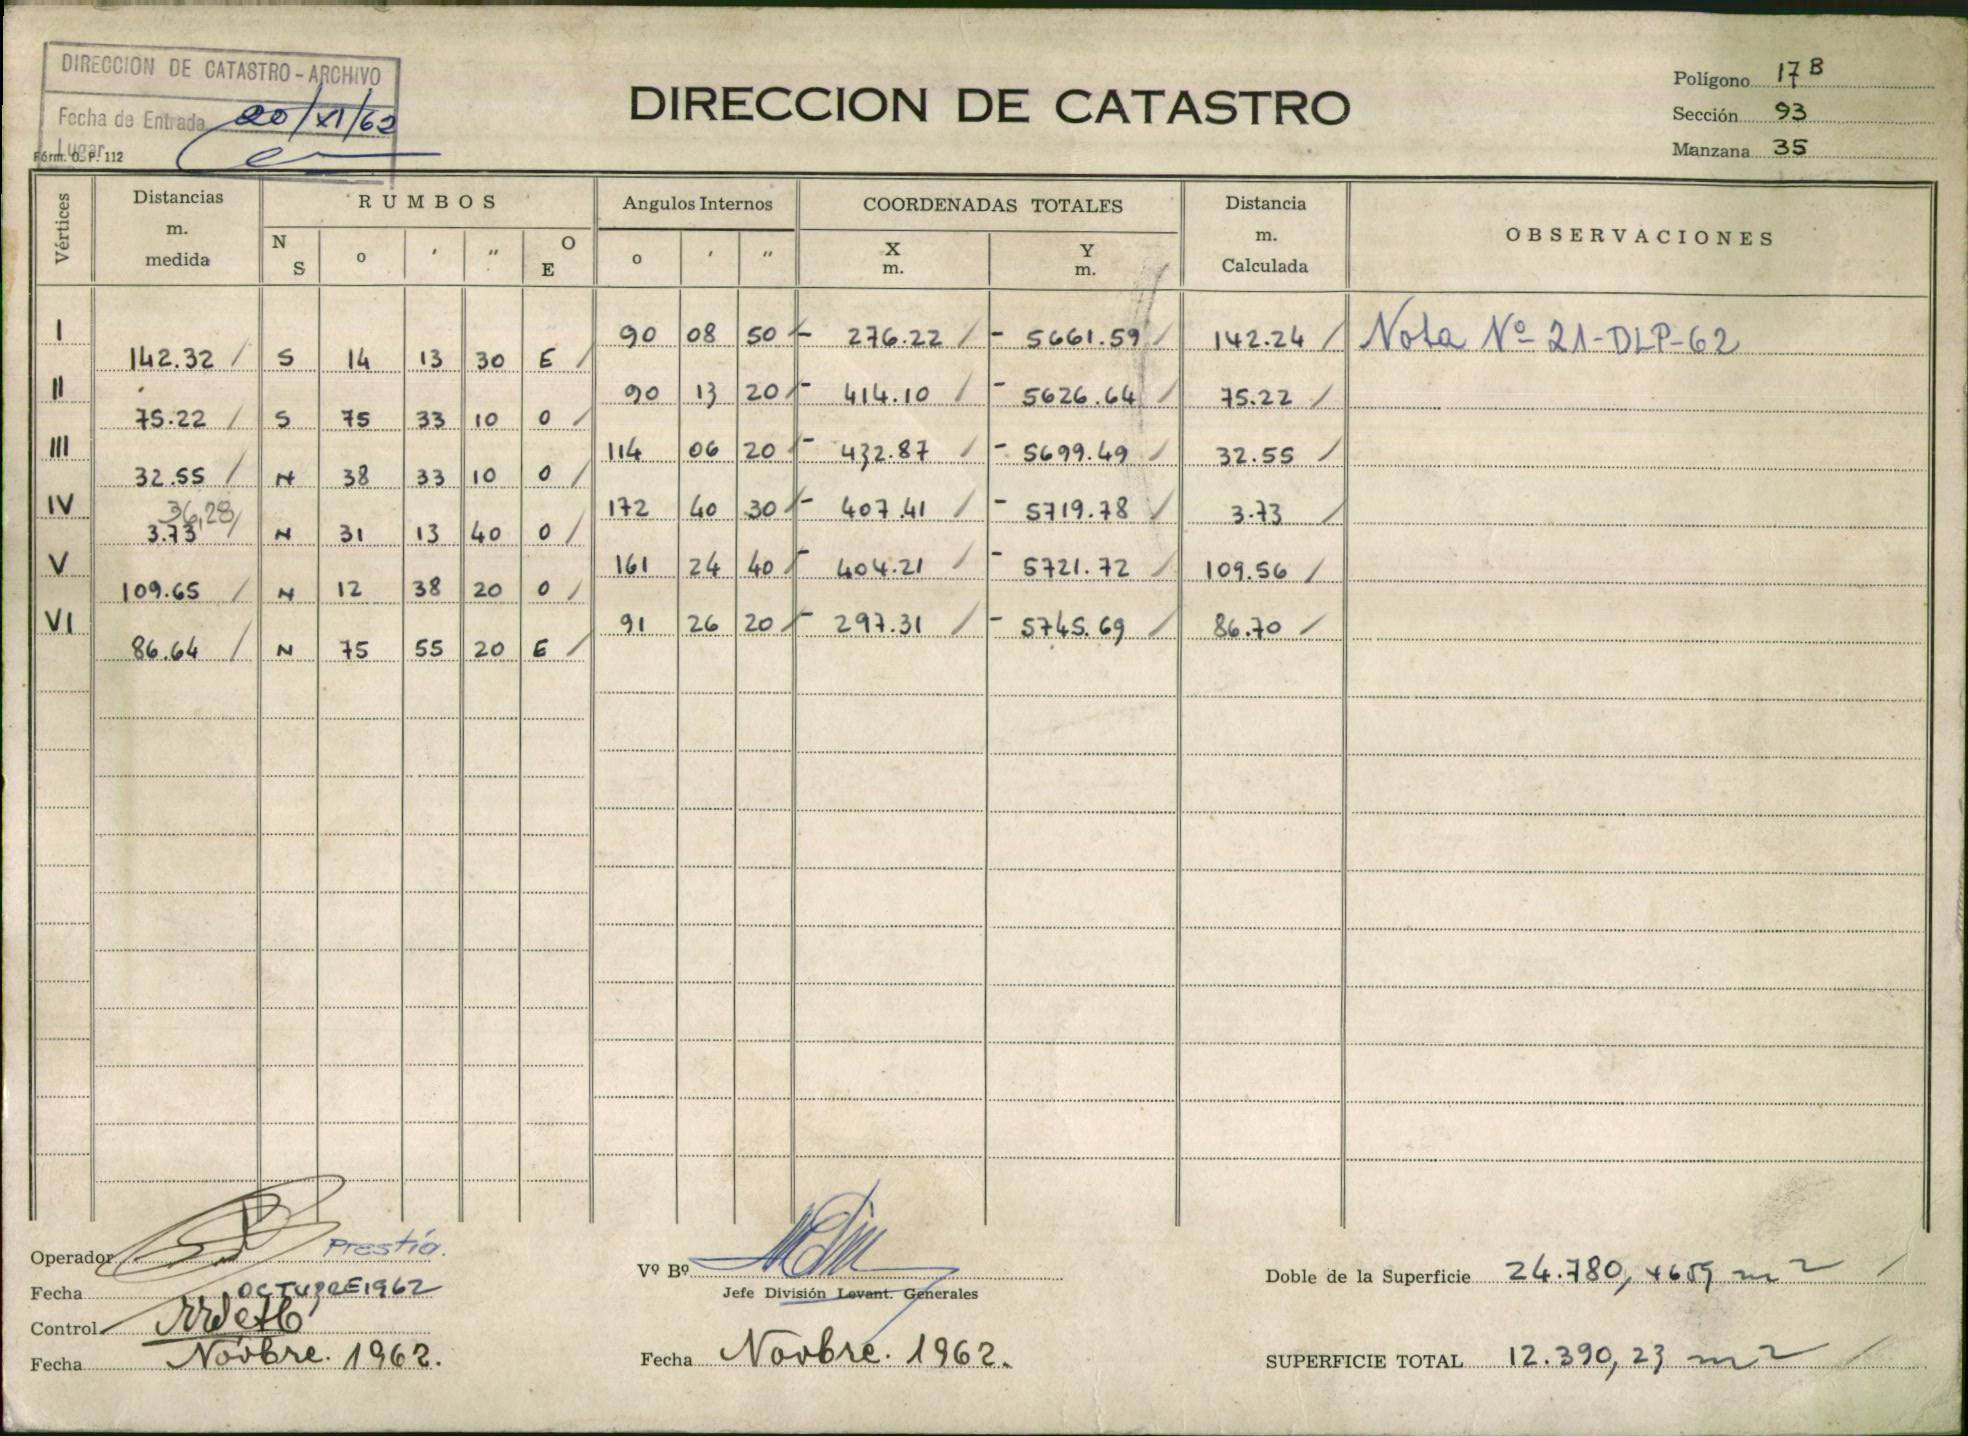 DIRECCION DE CATASTRO - ARCHIVO
Fecha de Entrada 20/XI/62
Lugar
Fórm. O. P. 112
DIRECCION DE CATASTRO
Polígono 17 B
Sección 93
Manzana 35
Vértices Distancias m. medida RUMBOS Angulos Internos COORDENADAS TOTALES Distancia m. Calculada OBSERVACIONES
N S o ' " O E o ' " X m. Y m.
I 90 08 50 - 276.22 - 5661.59 142.24 Nota Nº 21-DLP-62
142.32 S 14 13 30 E
II 90 13 20 - 414.10 - 5626.64 75.22
75.22 S 75 33 10 O
III 114 06 20 - 432.87 - 5699.49 32.55
32.55 N 38 33 10 O
IV 172 40 30 - 407.41 - 5719.78 3.73
36,28
3.73 N 31 13 40 O
V 161 24 40 - 404.21 - 5721.72 109.56
109.65 N 12 38 20 O
VI 91 26 20 - 297.31 - 5745.69 86.70
86.64 N 75 55 20 E
Operador Prestía.
Fecha OCTUBRE 1962
Control
Fecha Novbre. 1962.
Vº Bº
Jefe División Levant. Generales
Fecha Novbre. 1962.
Doble de la Superficie 24.780, m2
SUPERFICIE TOTAL 12.390,23 m2